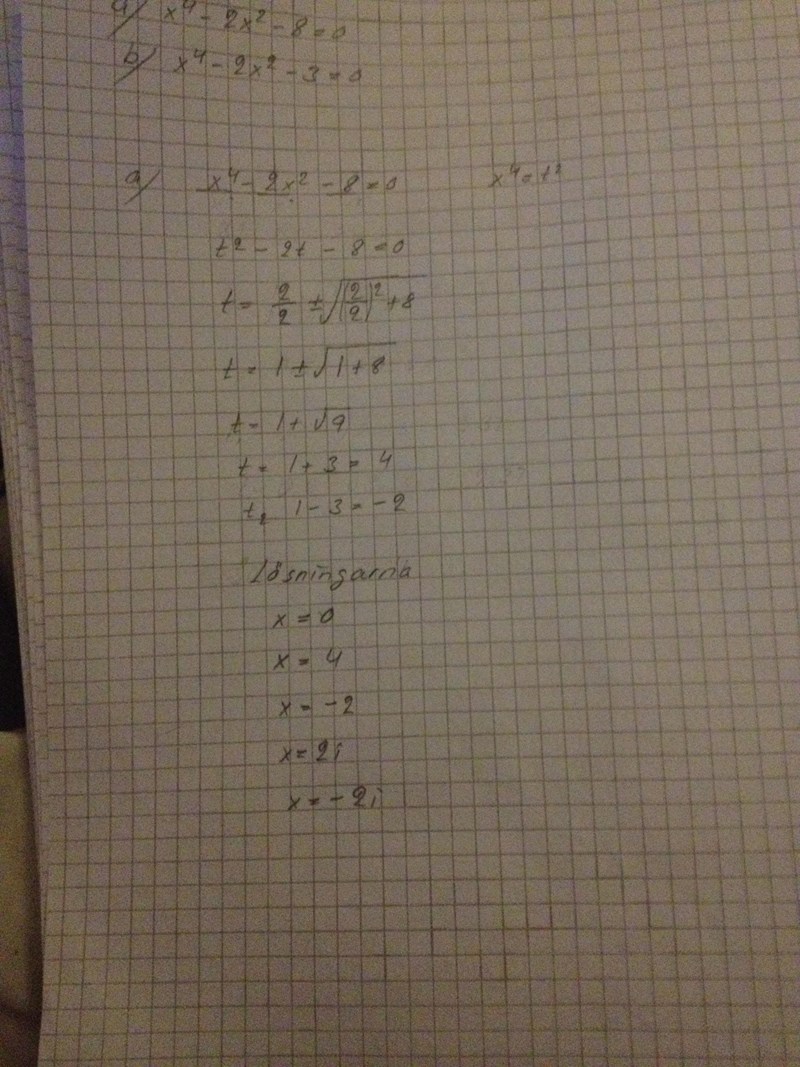 a) x⁴ - 2x² - 8 = 0
b) x⁴ - 2x² - 3 = 0
a) x⁴ - 2x² - 8 = 0 x⁴ = t²
t² - 2t - 8 = 0
t = 2/2 ± √((2/2)² + 8)
t = 1 ± √(1 + 8)
t = 1 + √9
t = 1 + 3 = 4
t₂ 1 - 3 = -2
Lösningarna
x = 0
x = 4
x = -2
x = 2i
x = -2i